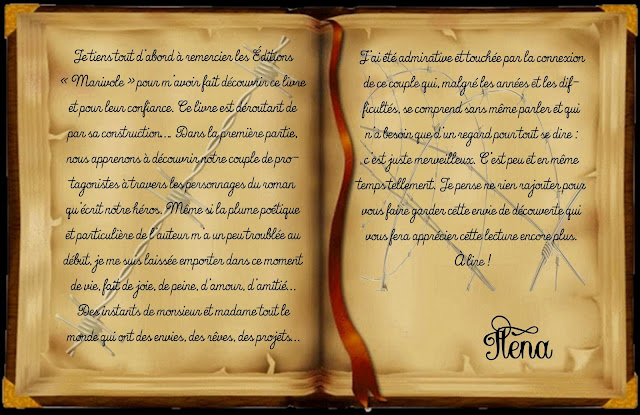 Je tiens tout d'abord à remercier les Éditions
« Marivole » pour m'avoir fait découvrir ce livre
et pour leur confiance. Ce livre est déroutant de
par sa construction... Dans la première partie,
nous apprenons à découvrir notre couple de pro-
tagonistes à travers les personnages du roman
qu'écrit notre héros. Même si la plume poétique
et particulière de l'auteur m a un peu troublée au
début, je me suis laissée emporter dans ce moment
de vie, fait de joie, de peine, d'amour, d'amitié...
Des instants de monsieur et madame tout le
monde qui ont des envies, des rêves, des projets...
J'ai été admirative et touchée par la connexion
de ce couple qui, malgré les années et les dif-
ficultés, se comprend sans même parler et qui
n'a besoin que d'un regard pour tout se dire :
c'est juste merveilleux. C'est peu et en même
temps tellement. Je pense ne rien rajouter pour
vous faire garder cette envie de découverte qui
vous fera apprécier cette lecture encore plus.
A lire !